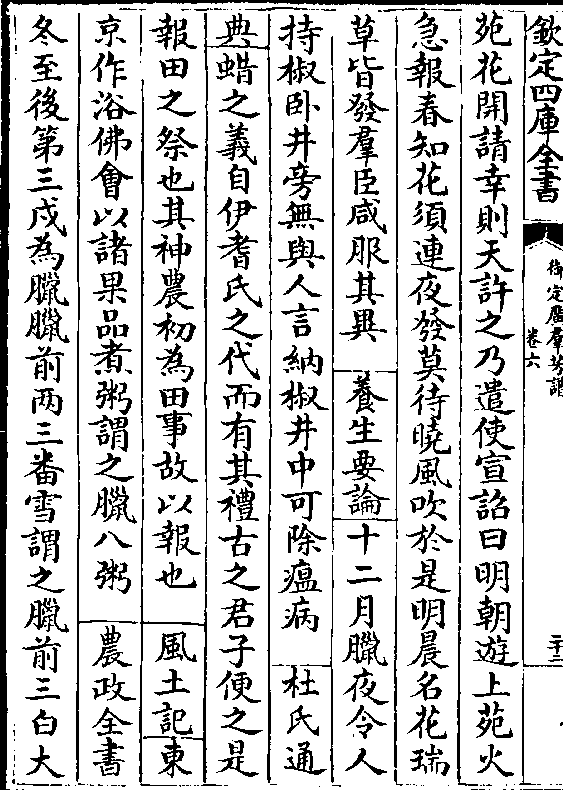 欽定四庫全書
御定廣羣芳譜
卷六
二十二
苑花開請幸則天許之乃遣使宣詔曰明朝遊上苑火
急報春知花須連夜發莫待曉風吹於是明晨名花瑞
草皆發羣臣咸服其異 養生要論 十二月臘夜令人
持椒卧井旁無與人言納椒井中可除瘟病 杜氏通
典 蜡之義自伊耆氏之代而有其禮古之君子使之是
報田之祭也其神農初為田事故以報也 風土記 東
京作浴佛會以諸果品煮粥謂之臘八粥 農政全書
冬至後第三戌為臘臘前两三番雪謂之臘前三白大